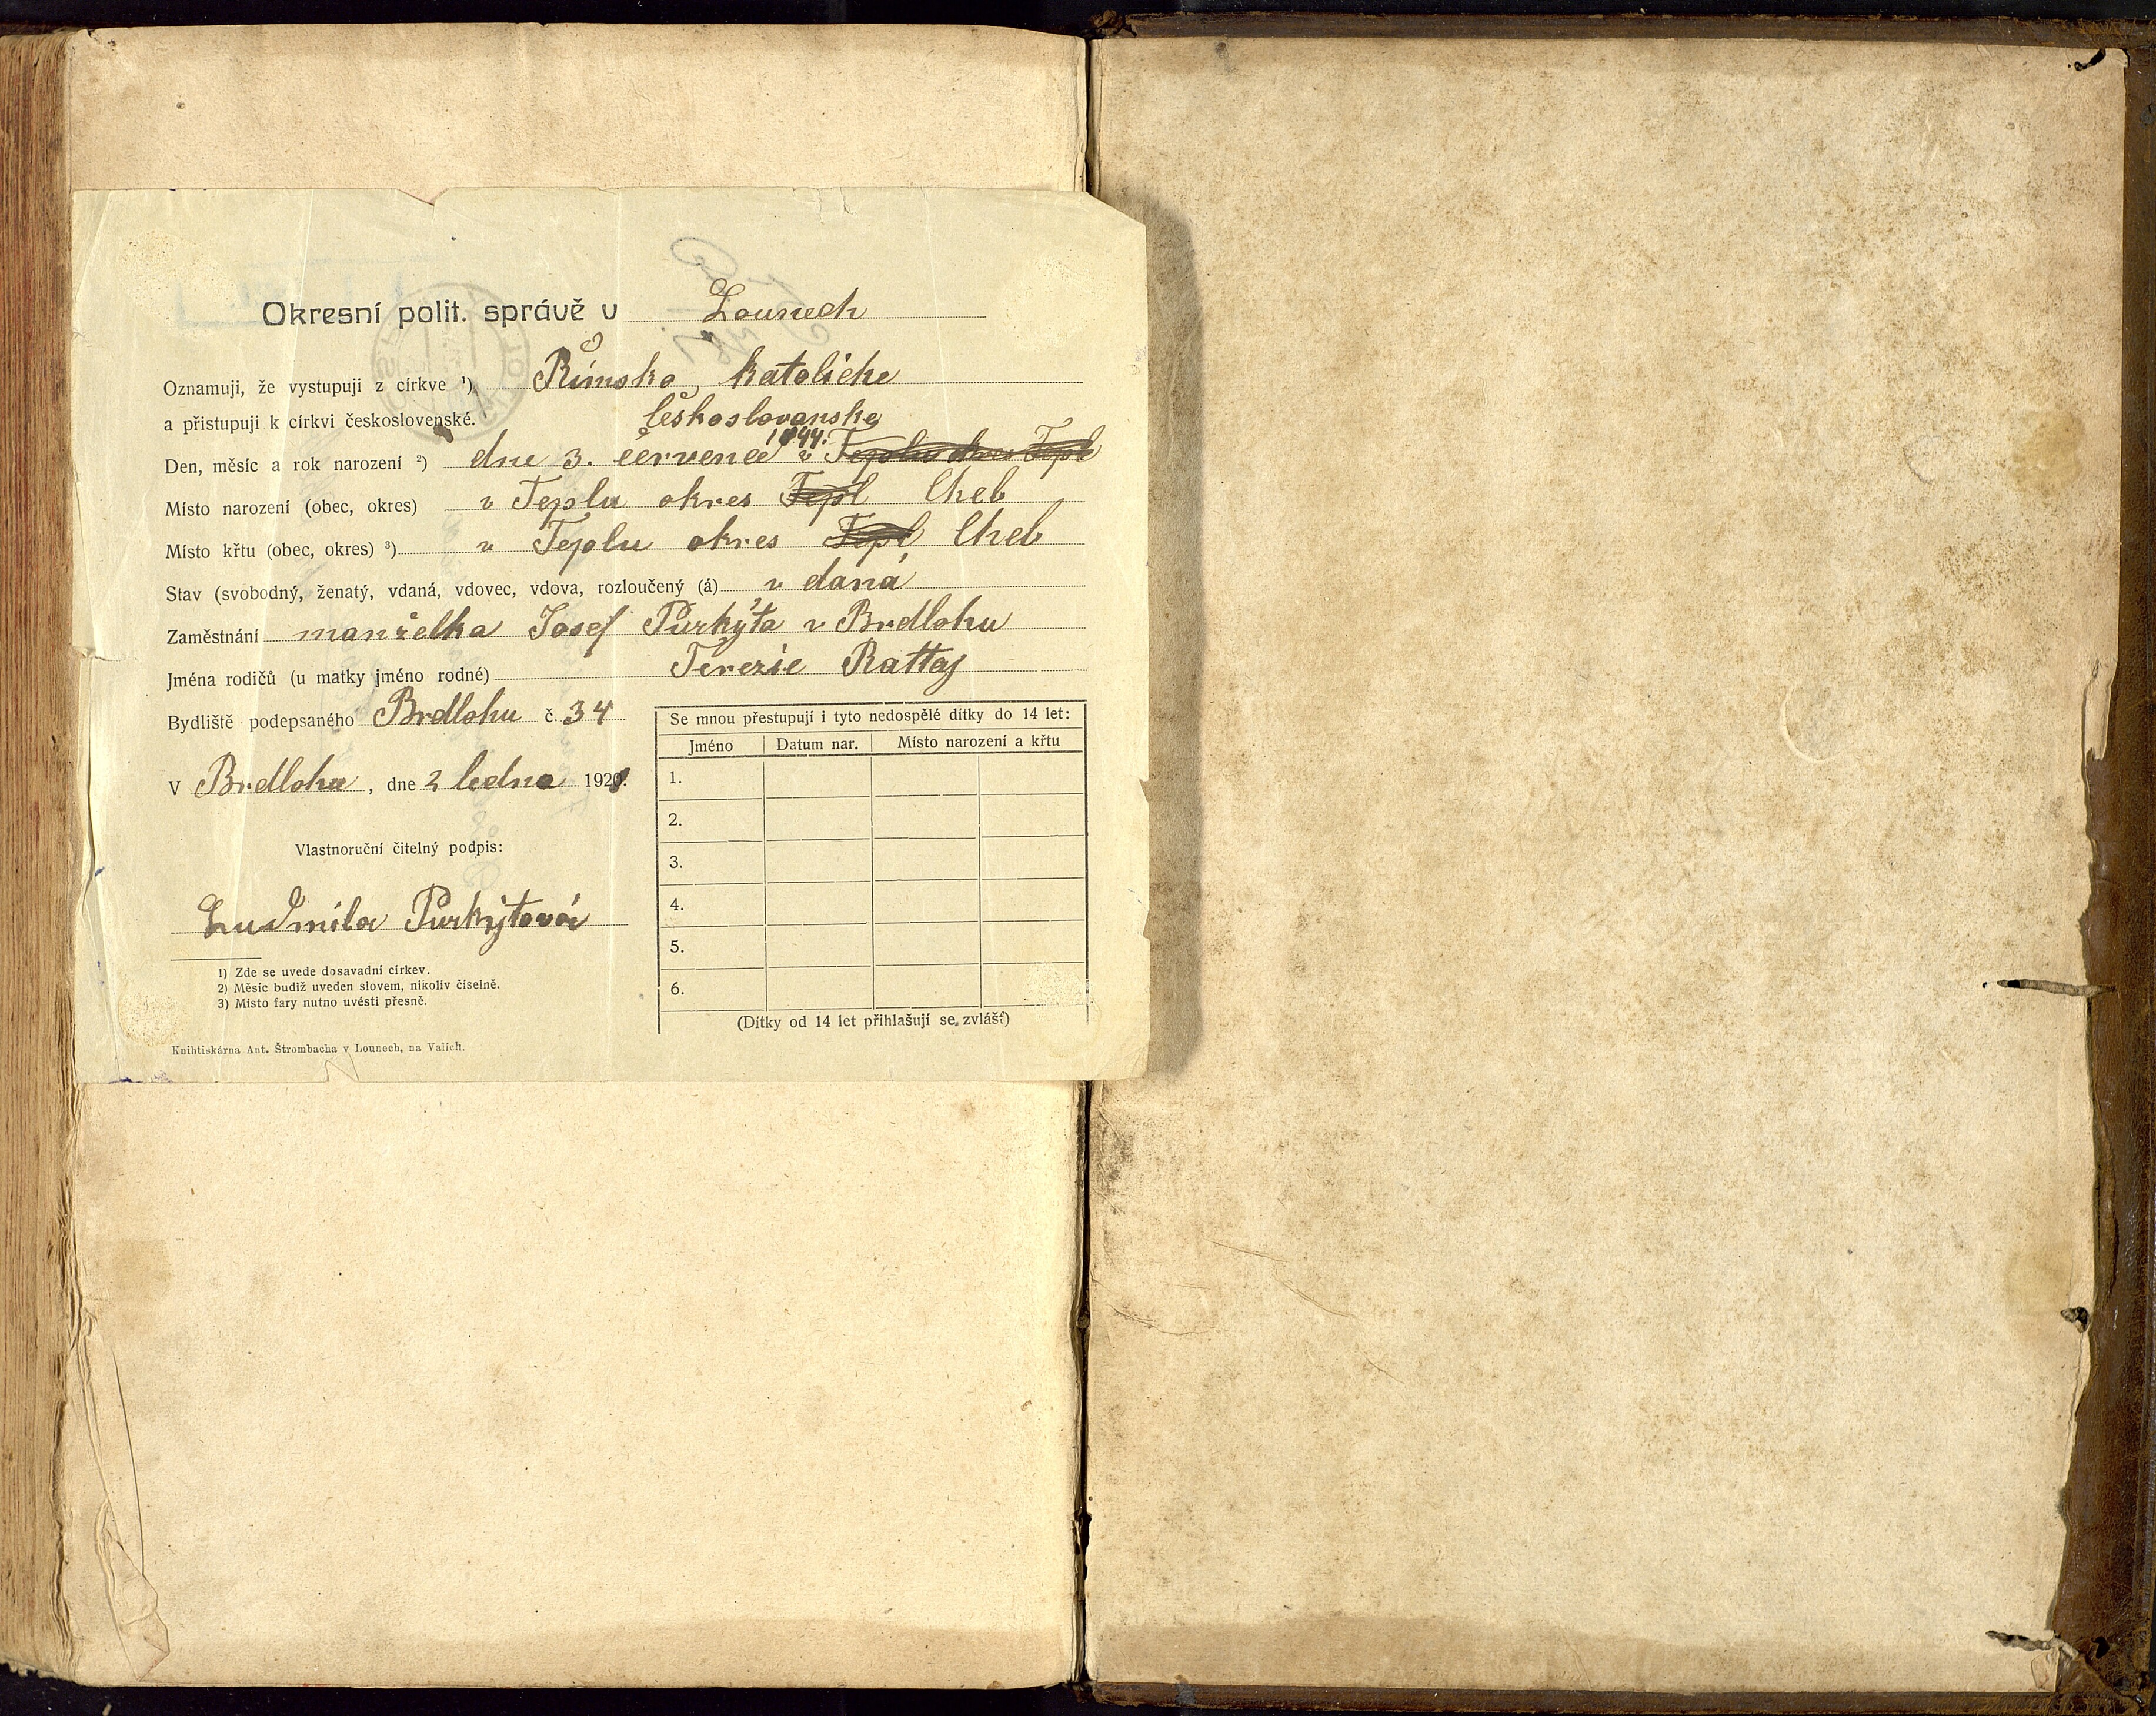 Okresní polit. správě v Lounech
Oznamuji, že vystupuji z církve ¹) Římsko katolické
a přistupuji k církvi československé. českoslovanské
1844.
Den, měsíc a rok narození ²) dne 3. červenec v Teplu okres Tepl
Místo narození (obec, okres) v Teplu okres Tepl Cheb
Místo křtu (obec, okres) ³) v Teplu okres Tepl Cheb
Stav (svobodný, ženatý, vdaná, vdovec, vdova, rozloučený (á) v daná
Zaměstnání manželka Josef Purkýta v Brdlohu
Jména rodičů (u matky jméno rodné) Terezie Rattaj
Bydliště podepsaného Brdlohu č. 34
V Brdlohu, dne 2 ledna 1921.
Vlastnoruční čitelný podpis:
Ludmila Purkýtová
1) Zde se uvede dosavadní církev.
2) Měsíc budiž uveden slovem, nikoliv číselně.
3) Místo fary nutno uvésti přesně.
Knihtiskárna Ant. Štrombacha v Lounech, na Valích.
Se mnou přestupují i tyto nedospělé dítky do 14 let:
Jméno Datum nar. Místo narození a křtu
1.
2.
3.
4.
5.
6.
(Dítky od 14 let přihlašují se zvlášť)